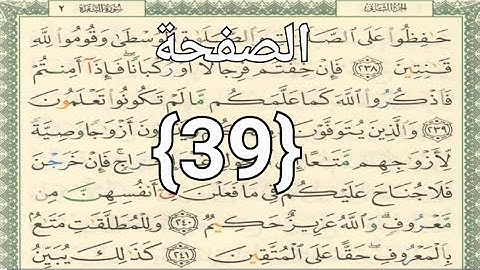 الجزء الثاني سورة البقرة ٢
الصفحة
حَٰفِظُوا۟ عَلَى ٱلْوُسْطَىٰ وَقُومُوا۟ لِلَّهِ
قَٰنِتِينَ ٢٣٨ فَإِنْ خِفْتُمْ فَرِجَالًا أَوْ رُكْبَانًا فَإِذَآ أَمِنتُمْ
فَٱذْكُرُوا۟ ٱللَّهَ كَمَا عَلَّمَكُم مَّا لَمْ تَكُونُوا۟ تَعْلَمُونَ
{39}
٢٣٩ وَٱلَّذِينَ يُتَوَفَّوْنَ أَزْوَٰجًا وَصِيَّةً
لِّأَزْوَٰجِهِم مَّتَٰعًا إِخْرَاجٍ فَإِنْ خَرَجْنَ
فَلَا جُنَاحَ عَلَيْكُمْ فِى مَا فَعَلْنَ فِىٓ أَنفُسِهِنَّ مِن
مَّعْرُوفٍ وَٱللَّهُ عَزِيزٌ حَكِيمٌ ٢٤٠ وَلِلْمُطَلَّقَٰتِ مَتَٰعٌۢ
بِٱلْمَعْرُوفِ حَقًّا عَلَى ٱلْمُتَّقِينَ ٢٤١ كَذَٰلِكَ يُبَيِّنُ